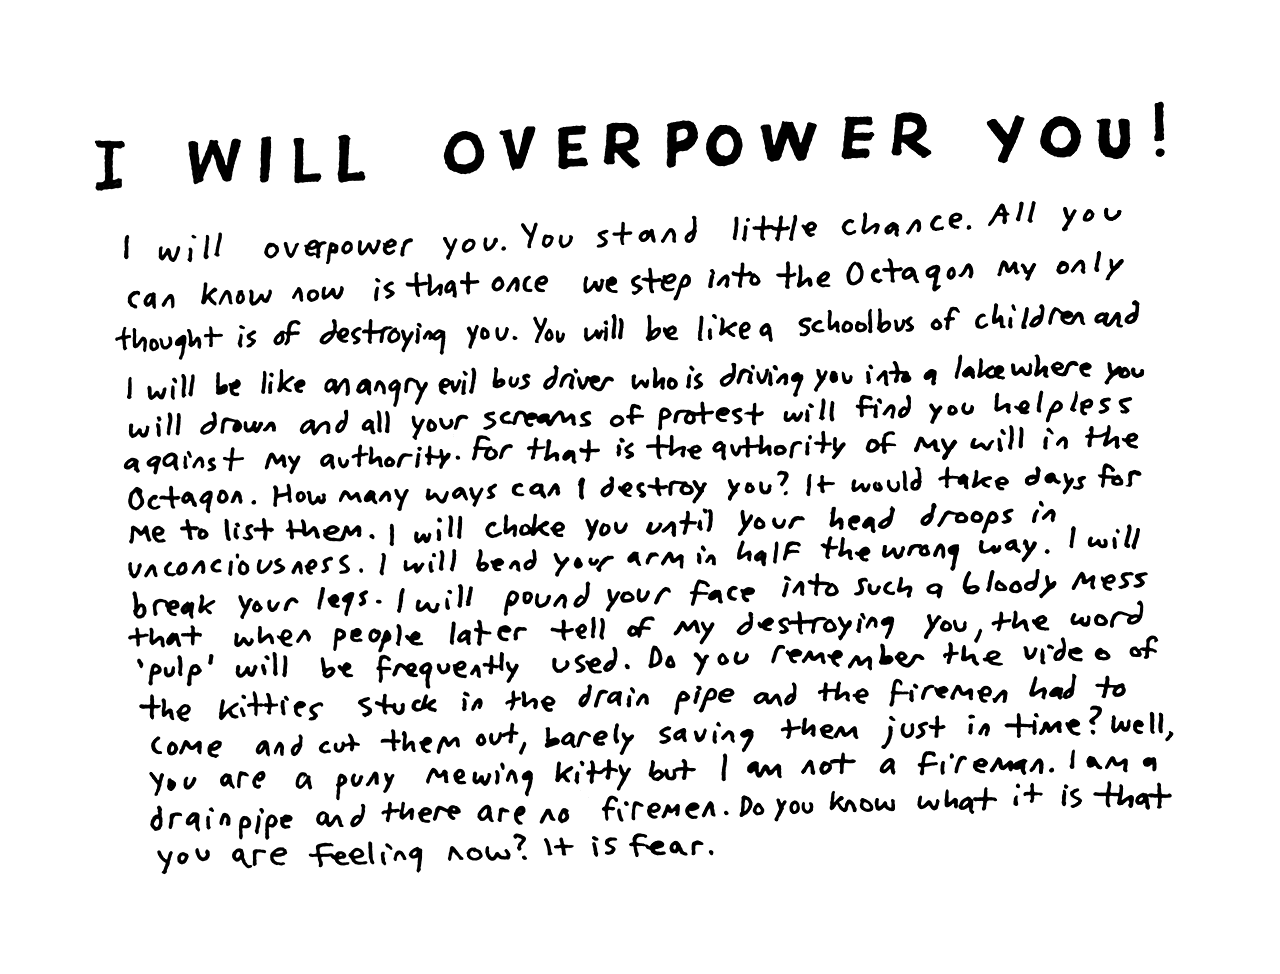 I WILL OVERPOWER YOU!
I will overpower you. You stand little chance. All you
can know now is that once we step into the Octagon my only
thought is of destroying you. You will be like a schoolbus of children and
I will be like an angry evil bus driver who is driving you into a lake where you
will drown and all your screams of protest will find you helpless
against my authority. For that is the authority of my will in the
Octagon. How many ways can I destroy you? It would take days for
me to list them. I will choke you until your head droops in
unconciousness. I will bend your arm in half the wrong way. I will
break your legs. I will pound your face into such a bloody mess
that when people later tell of my destroying you, the word
'pulp' will be frequently used. Do you remember the video of
the kitties stuck in the drain pipe and the firemen had to
come and cut them out, barely saving them just in time? Well,
you are a puny mewing kitty but I am not a fireman. I am a
drainpipe and there are no firemen. Do you know what it is that
you are feeling now? It is fear.